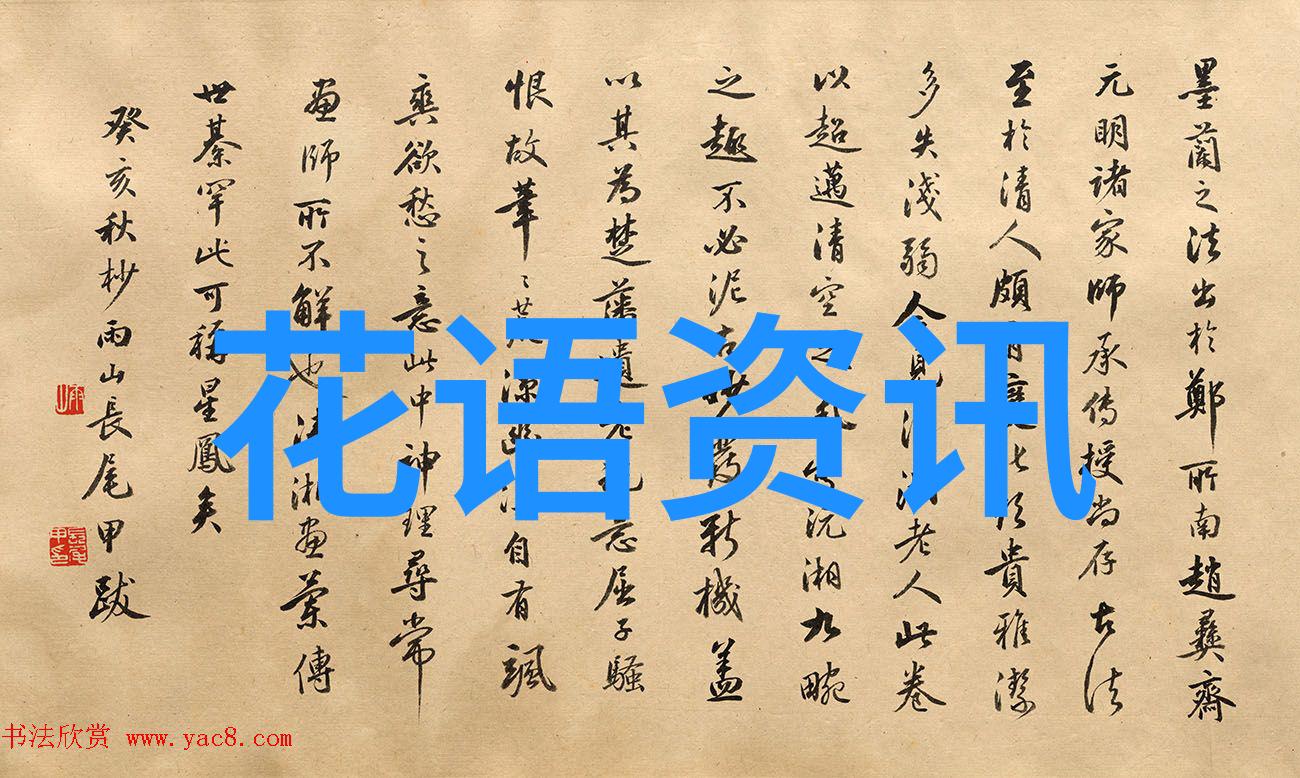 墨蘭之法出於鄭所南趙彝齋
元明諸家師承傳授尚存古法
至於清人頗貴雅潔
多失淺弱今見清湘老人此卷
以超邁清空之沅湘九畹
之趣不必泥古新機蓋
以其為楚藩遺老忘屈子騷
恨故葉〻自有颯
爽欲愁之意此中神理尋常
畫師所不解也清湘畫蘭傳
世綦罕此可稱星鳳矣
癸亥秋杪雨山長尾甲跋
花语资讯
书法欣赏 www.yac8.com